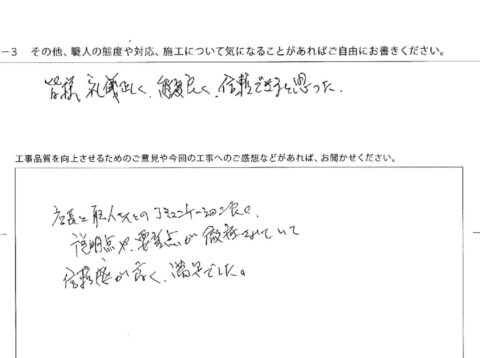 -3 その他、職人の態度や対応、施工について気になることがあればご自由にお書きください。
皆様、礼儀正しく、態度良く、信頼できると思った。
工事品質を向上させるためのご意見や今回の工事へのご感想などがあれば、お聞かせください。
店長と職人さんとのコミュニケーション良く、
説明点や、要望点が徹底されていて
信頼感が良く、満足でした。